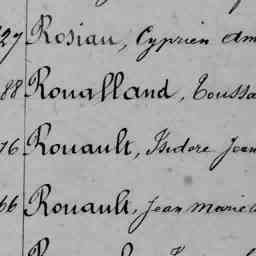 27 Rosiau, Cyprien Am
88 Roualland, Toussa
76 Rouault, Isidore Jean
66 Rouault, Jean Marie